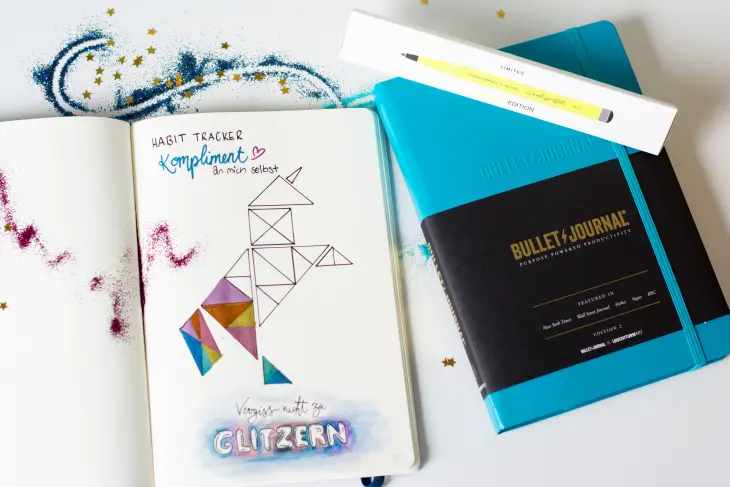 HABIT TRACKER
Kompliment
an mich selbst
Vergiss nicht zu
GLITZERN
LIMITED
EDITION
BULLET JOURNAL
BULLET JOURNAL®
PURPOSE POWERED PRODUCTIVITY
FEATURED IN
New York Times Wall Street Journal Forbes Vogue BBC
EDITION 2
BULLET JOURNAL LEUCHTTURM1917